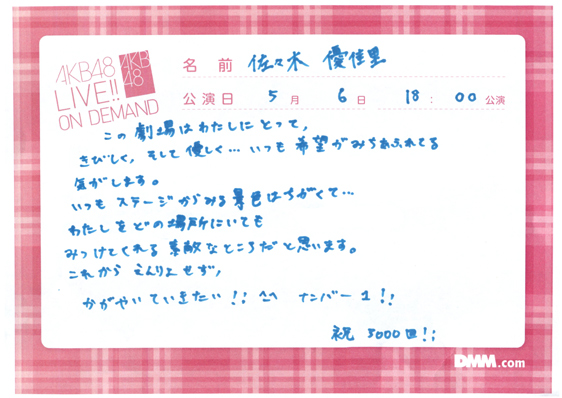 AKB48
LIVE!!
ON DEMAND
AKB
48
名前 佐々木 優佳里
公演日 5月 6日 18:00公演
この劇場はわたしにとって,
きびしく, そして優しく… いつも希望がみちあふれてる
気がします。
いつもステージからみる景色はちがくて…
わたしをどの場所にいても
みつけてくれる素敵なところだと思います。
これからえんりょせず,
かがやいていきたい!! ^^ ナンバー1!!
祝 5000回!!
DMM.com